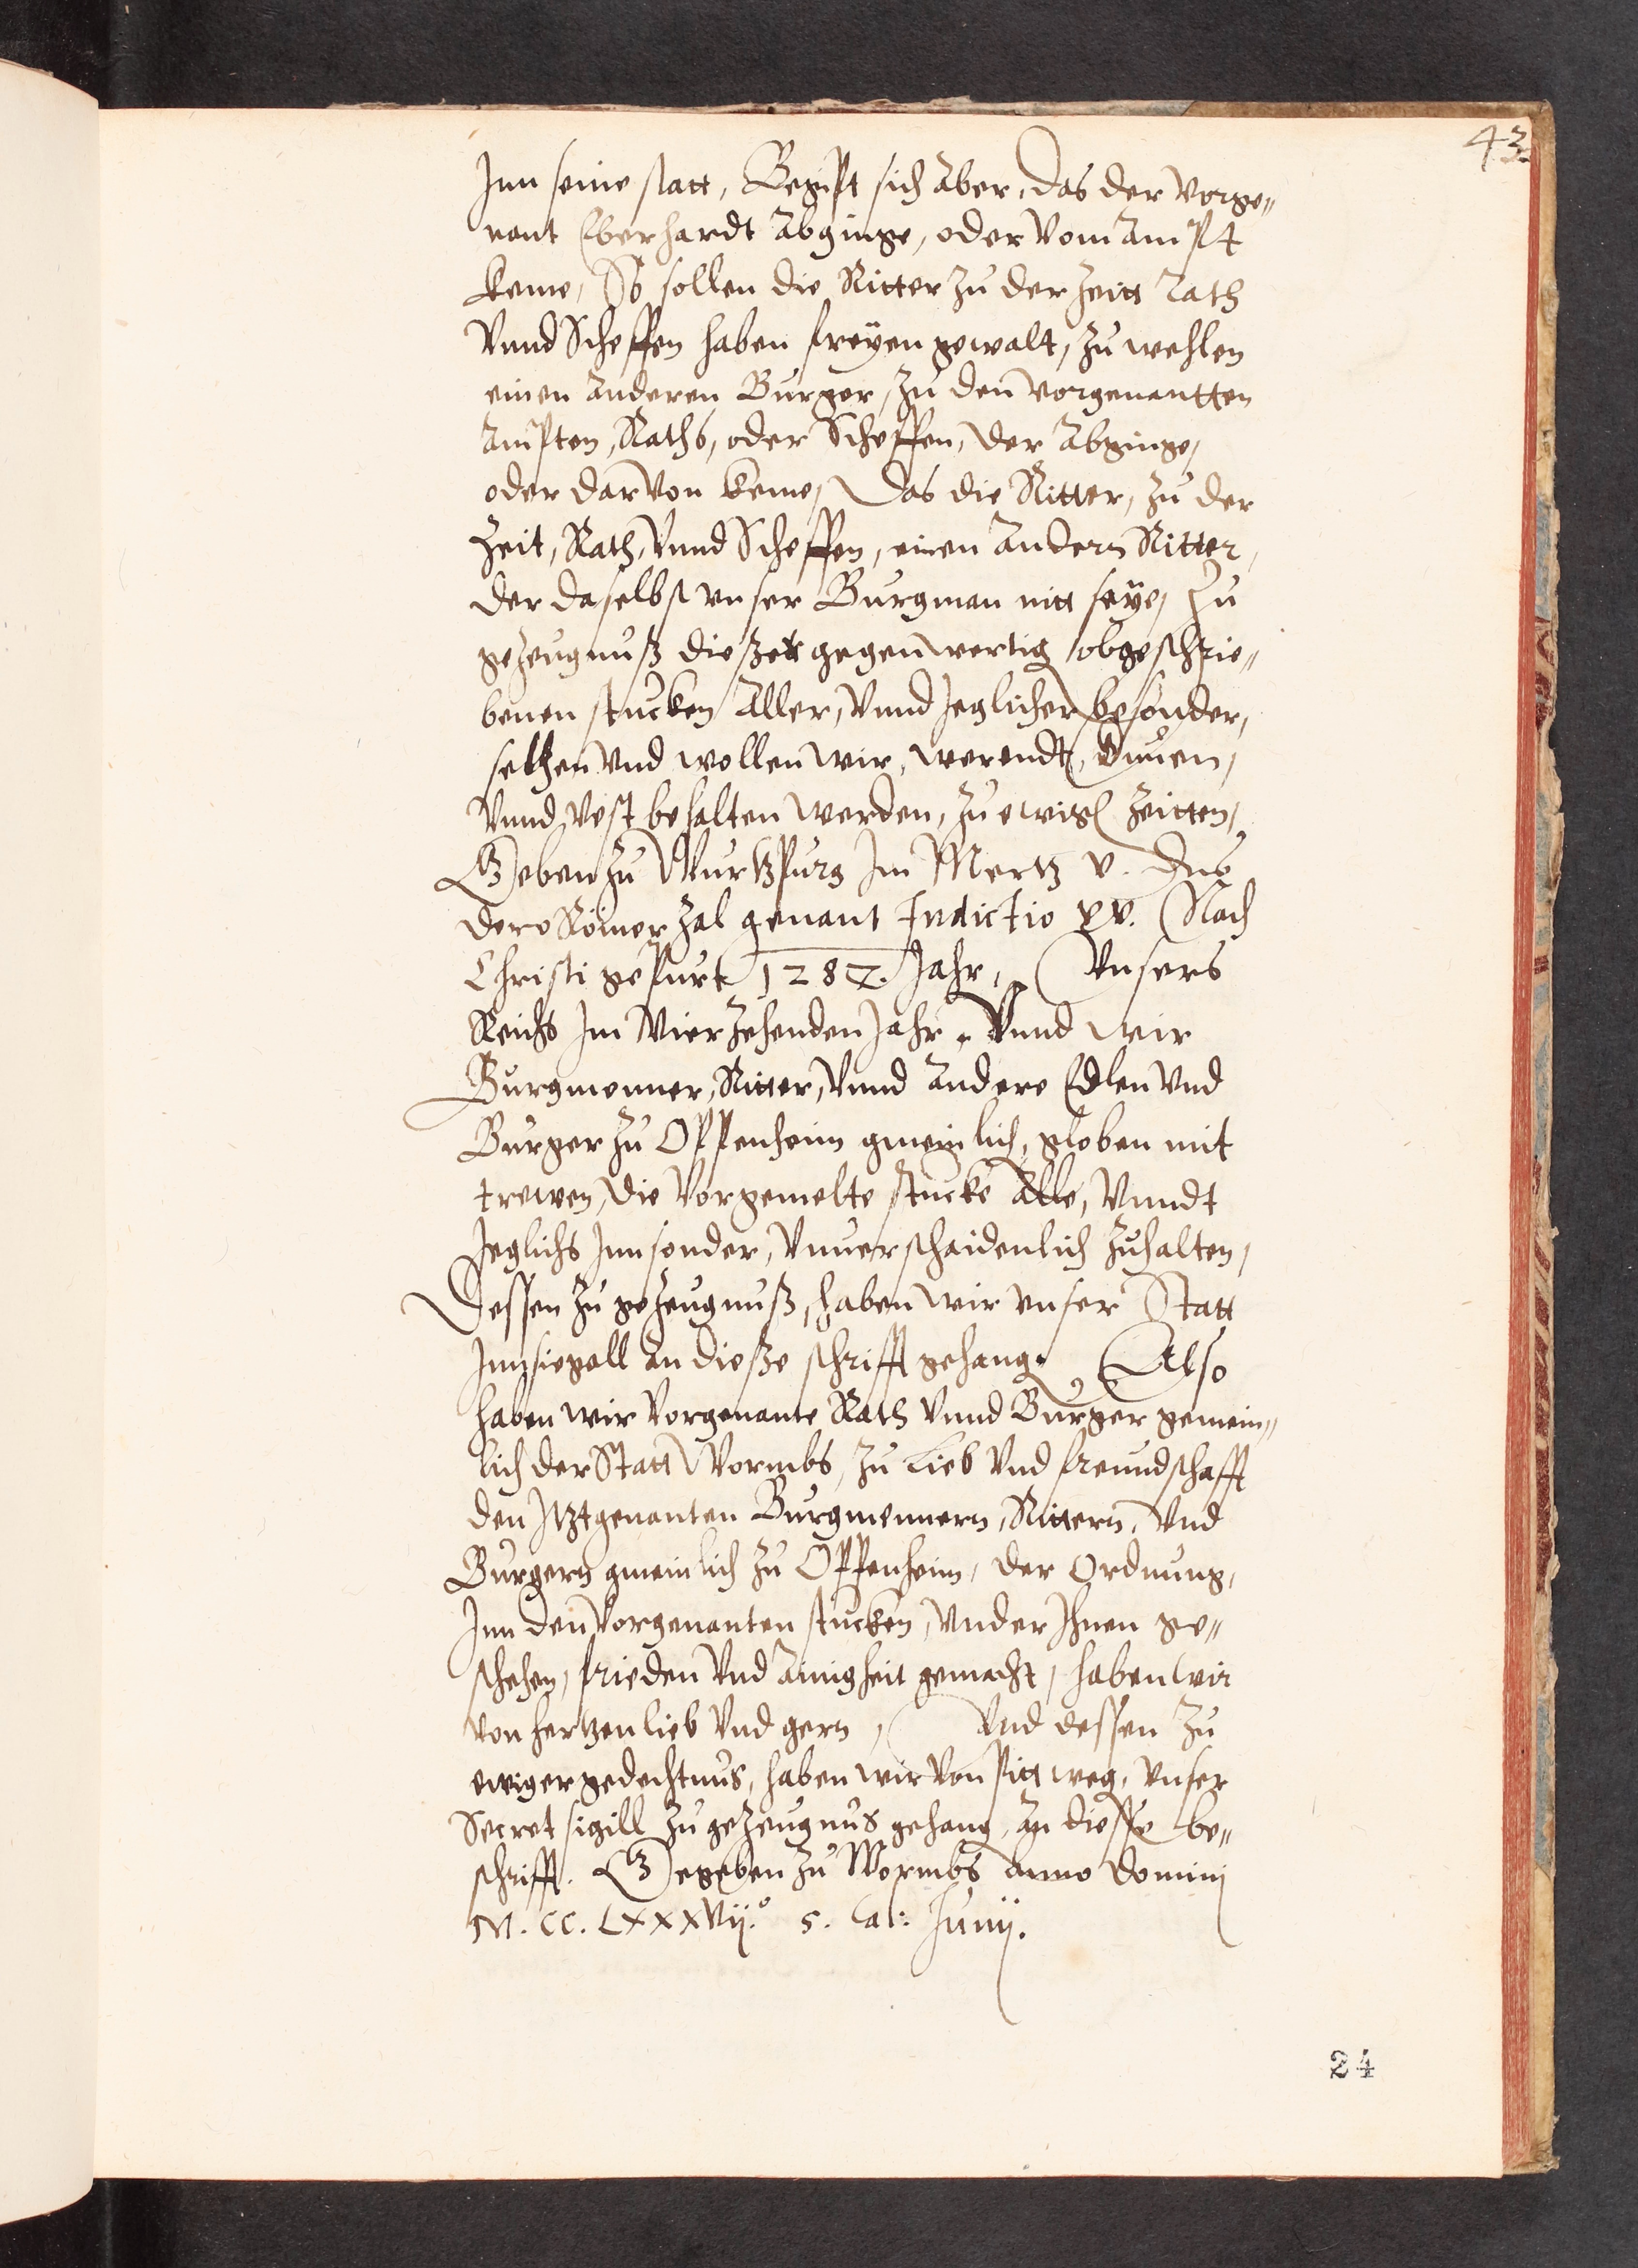 43
Inn seine statt, Begipt sich aber, das der vorge„
nant Eberhardt abginge, oder vom Ampt
keme, So sollen die Ritter zu der Zeitt Rath
Vnnd Scheffen haben freyen gewalt, zu wehlen
einen anderen Burger, zu den vorgenantten
ampten, Raths, oder Scheffen, der abginge,
oder darvon keme, Das die Ritter, zu der
Zeit, Rath, Vnnd Scheffen, einen andern Ritter,
der daselbst vnser Burgman nitt seye, Zu
gezeugnuß dießer gegenwertig obgeschrie„
benen stucken aller, Vnnd Jeglicher besonder,
setzen vnd wollen wir, werendt,
Vnnd vest behalten werden, zu ewigen Zeitten,
Geben zu Wurtzpurg Im Mertz V. Jdus
dero Römer zal genant Indictio XV. Nach
Christi gepurt 1287. Jahr, Vnsers
Reichs Im Vierzehenden Jahr. Vnnd wir
Burgmenner, Ritter, Vnnd andere Edlen vnd
Burger zu Oppenheim gmeinlich, globen mit
trewen, die vorgemelte stucke alle, Vnndt
Jeglichs Innsonder, Vnuerschaidenlich zuhalten,
Dessen zu gezeugnuß, haben wir vnser Statt
Innsiegell an dieße schrifft gehang. Also
haben wir vorgenante Rath vnnd Burger gemein„
lich der Statt Wormbs, zu Lieb vnd freundschafft
den Itztgenanten Burgmennern, Rittern, vnd
Burgern gmeinlich zu Oppenheim, der Ordnung,
Inn den vorgenanten stucken, vnder Ihnen ge„
schehen, frieden vnd ainigheit gemacht, haben wir
von hertzen lieb vnd gern, Vnd dessen zu
ewiger gedechtnus, haben wir von pitt weg, vnser
Secret sigill zu gezeugnus gehang, an diesse be„
schrifft. Gegeben zu Wormbs Anno Dominj
M. CC. LXXXVij.o 5. Cal: Junij.
24